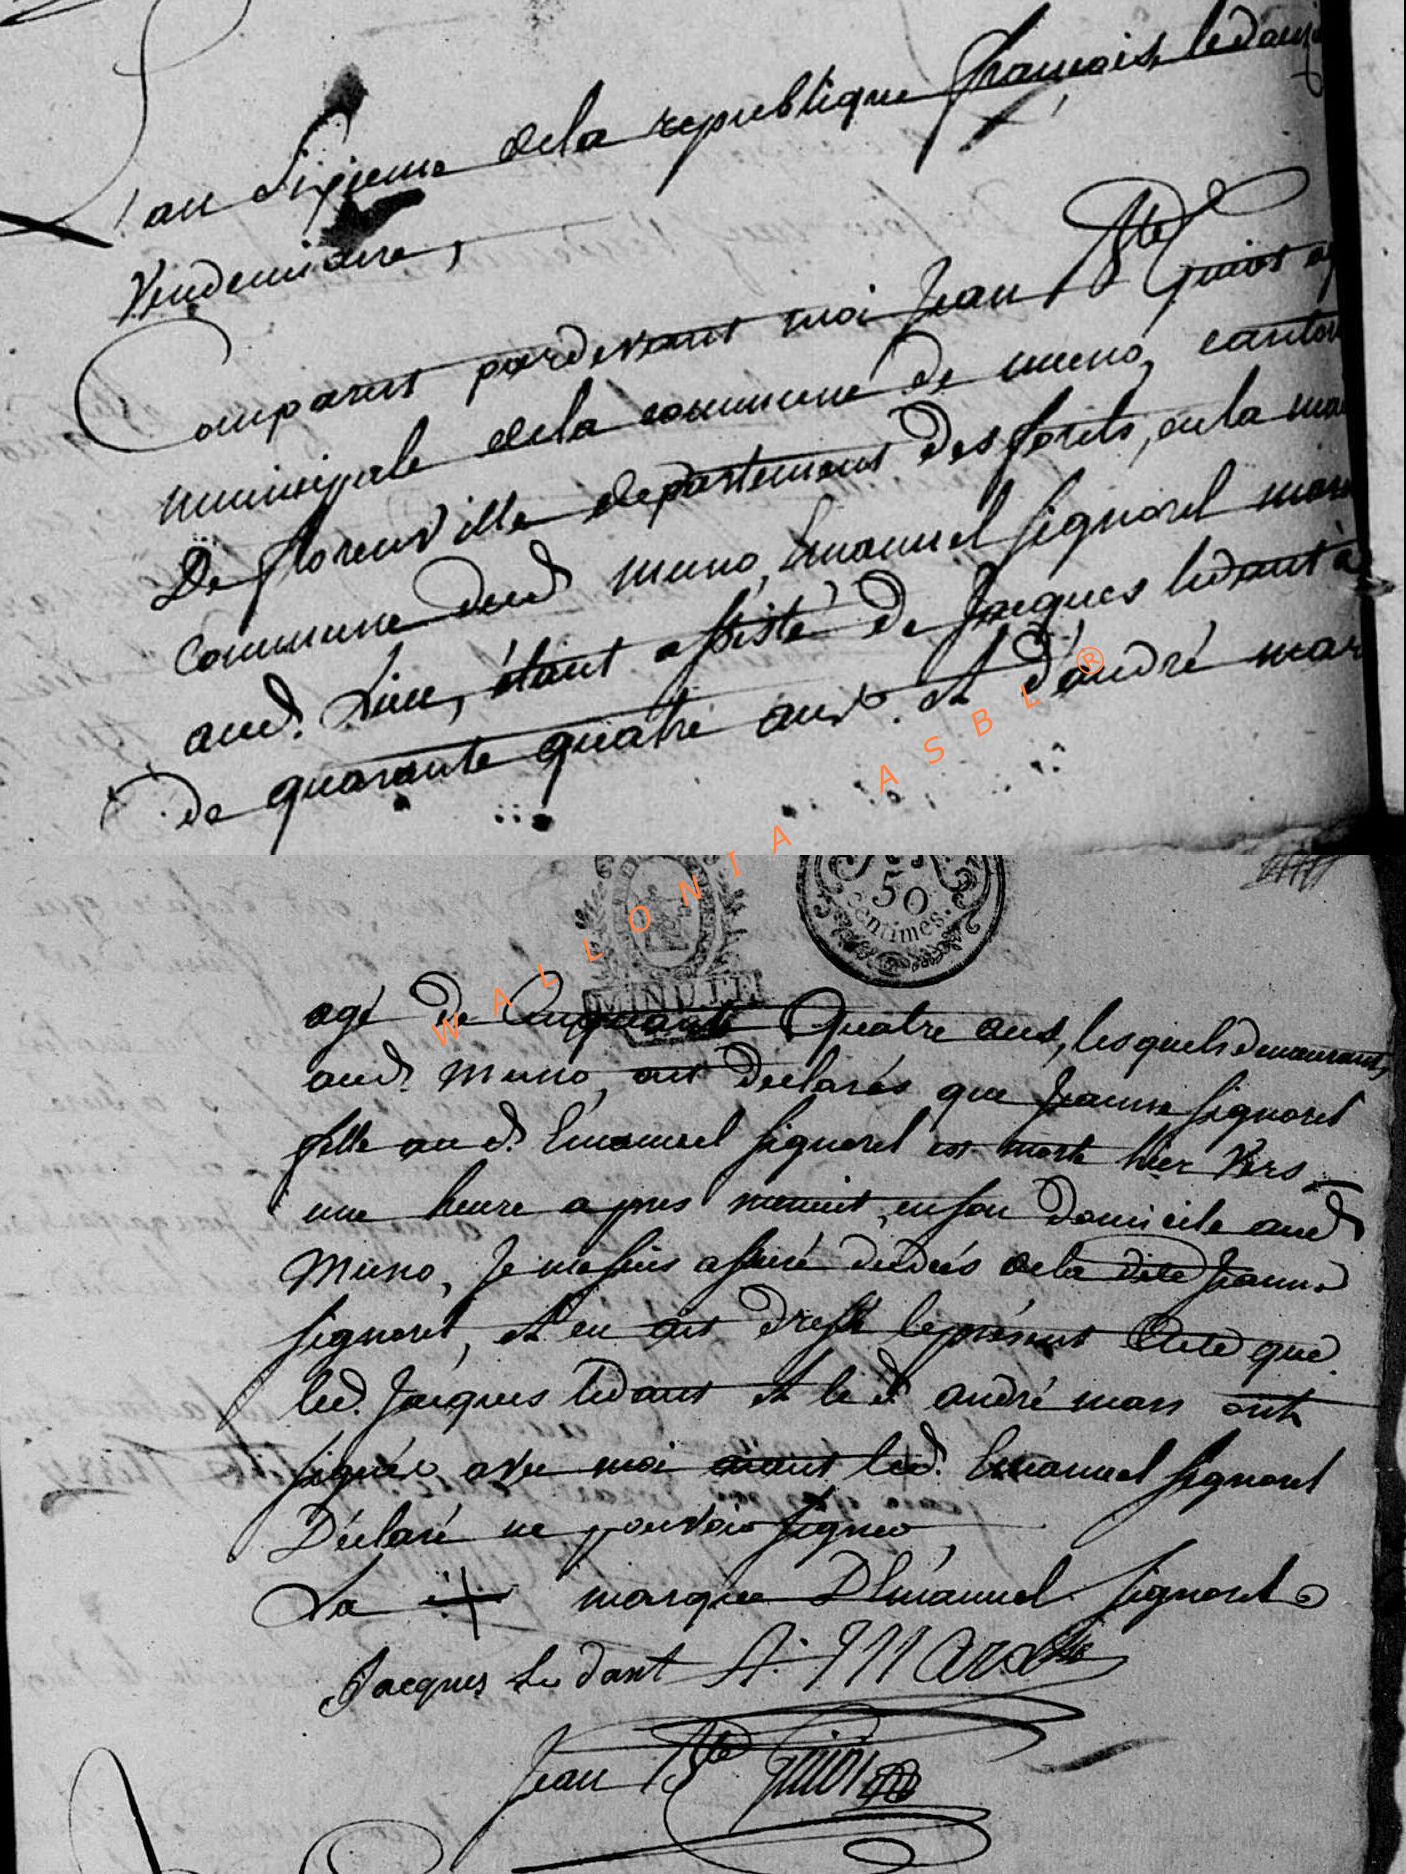 L'an Sixieme dela republique francoise, ledouz
Vendemiaire,
Comparus pardevant moi Jean Bte Guiot ag
municipale dela commune de muno, canton
De florenville departement des forêts, en la mai
commune dud muno, Emanuel Signorel man
aud. Lieu, étant assisté de Jacques ledant à
de quarante quatre ans. et d'andré mar
50
centimes.
MINUTE
agé de Cinquante Quatre ans, lesquels demeurant
aud. Muno, ont declarés que Jeanne Signorel
fille au d. Emanuel Signorel est morte hier vers
une heure apres minuit, en son domicile aud
Muno, Je me suis assuré du decés dela dite Jeanne
Signorel, et en ait dressé le présent Acte que
led. Jacques ledant et le d. andré mars ont
signéé avec moi aiant led. Emanuel Signorel
Déclaré ne pouvoir Signer
La + marque D'Emanuel Signorel
Jacques Le dant A: Mars
Jean Bte Guiot
WALLONIA ASBL ®